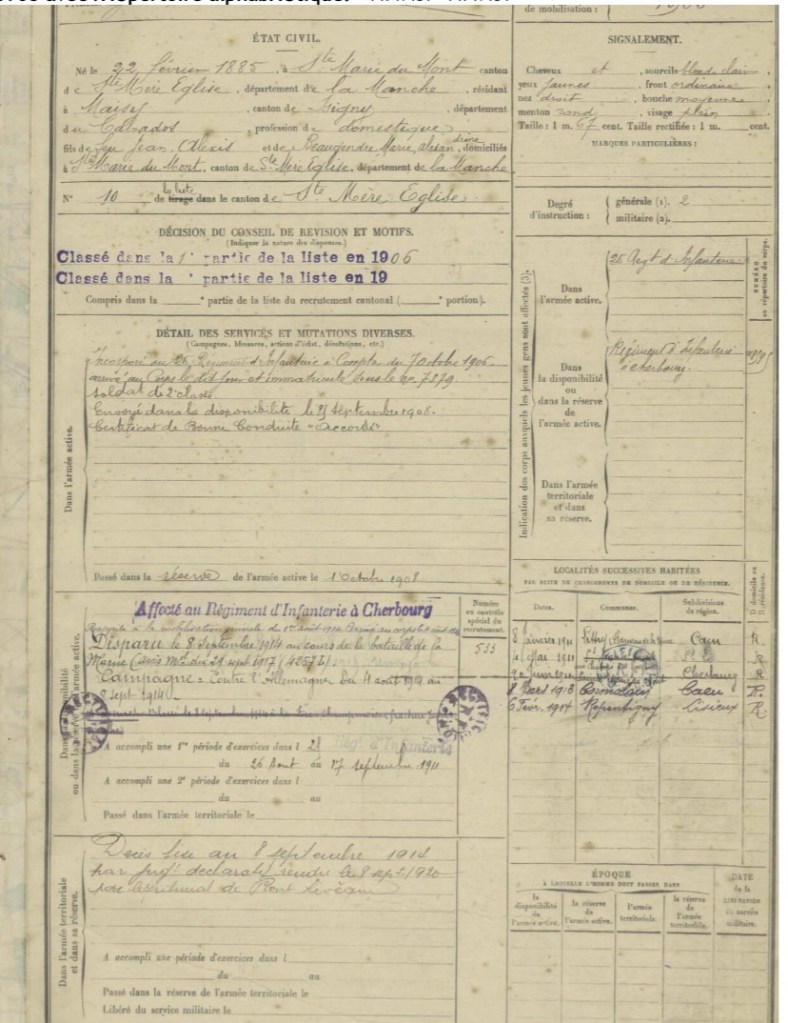 de mobilisation :
ÉTAT CIVIL.
Né le 22 février 1885, à Ste Marie du Mont canton
de Ste Mère Eglise, département de la Manche, résidant
à Maisy, canton de Isigny, département
du Calvados, profession de domestique
fils de feu Jean Alexis et de Beaugendre Marie, domiciliés
à Ste Marie du Mont, canton de Ste Mère Eglise, département de la Manche
N° 10 de la liste tirage dans le canton de Ste Mère Eglise
DÉCISION DU CONSEIL DE REVISION ET MOTIFS.
(Indiquer la nature des dispenses.)
Classé dans la 1e partie de la liste en 1906
Classé dans la e partie de la liste en 19
Compris dans la e partie de la liste du recrutement cantonal ( e portion).
DÉTAIL DES SERVICES ET MUTATIONS DIVERSES.
(Campagnes, blessures, actions d'éclat, décorations, etc.)
Dans l'armée active.
Incorporé au 25 Régiment d'Infanterie à Compter du 7 Octobre 1906.
arrivé au Corps le dit jour et immatriculé sous le no 7279
Soldat de 2e classe
Envoyé dans la disponibilité le 25 Septembre 1908.
Certificat de Bonne Conduite "Accordé"
Passé dans la réserve de l'armée active le 1 Octobre 1908
Dans la disponibilité
ou dans la réserve de l'armée active.
Affecté au Régiment d'Infanterie à Cherbourg
Numéro au contrôle spécial du recrutement.
533
Rappelé à la mobilisation générale du 1er août 1914 Arrivé au corps le
Disparu le 8 Septembre 1914 au cours de la bataille de la
Marne (avis Mel du 21 sept 1917)
Campagne = Contre l'Allemagne Du 4 août 1914 au
8 sept 1914
A accompli une 1re période d'exercices dans l Rég' d'Infanterie
du 26 Aout au 17 septembre 1911
A accompli une 2e période d'exercices dans l
du au
Passé dans l'armée territoriale le
Dans l'armée territoriale
et dans sa réserve.
Décès fixé au 8 septembre 1914
par jugt déclaratif rendu le 8 sept 1920
par tribunal de Pont Lévêque
A accompli une période d'exercices dans l
du au
Passé dans la réserve de l'armée territoriale le
Libéré du service militaire le
SIGNALEMENT.
Cheveux et , sourcils blond clair,
yeux jaunes, front ordinaire
nez droit, bouche moyenne
menton rond, visage plein
Taille : 1 m. 67 cent. Taille rectifiée : 1 m. cent.
MARQUES PARTICULIÈRES :
Degré d'instruction :
générale (1). 2
militaire (2).
Indication des corps auxquels les jeunes gens sont affectés (3).
NUMÉRO au répertoire du corps.
Dans l'armée active.
25 Regt d'Infanterie
Dans la disponibilité ou dans la réserve de l'armée active.
Régiment d'Infanterie
Cherbourg
Dans l'armée territoriale et dans sa réserve.
LOCALITÉS SUCCESSIVES HABITÉES
PAR SUITE DE CHANGEMENTS DE DOMICILE OU DE RÉSIDENCE.
Dates. Communes. Subdivisions de région. D domicile ou R résidence.
8 janvier 1911 Caen R
Mai 1911 R
Cherbourg R
8 Mars 1913 Caen R
6 Févr. 1914 Repentigny Lisieux R
ÉPOQUE
À LAQUELLE L'HOMME DOIT PASSER DANS
DATE de la LIBÉRATION du service militaire.
la disponibilité de l'armée active.
la réserve de l'armée active.
l'armée territoriale.
la réserve de l'armée territoriale.